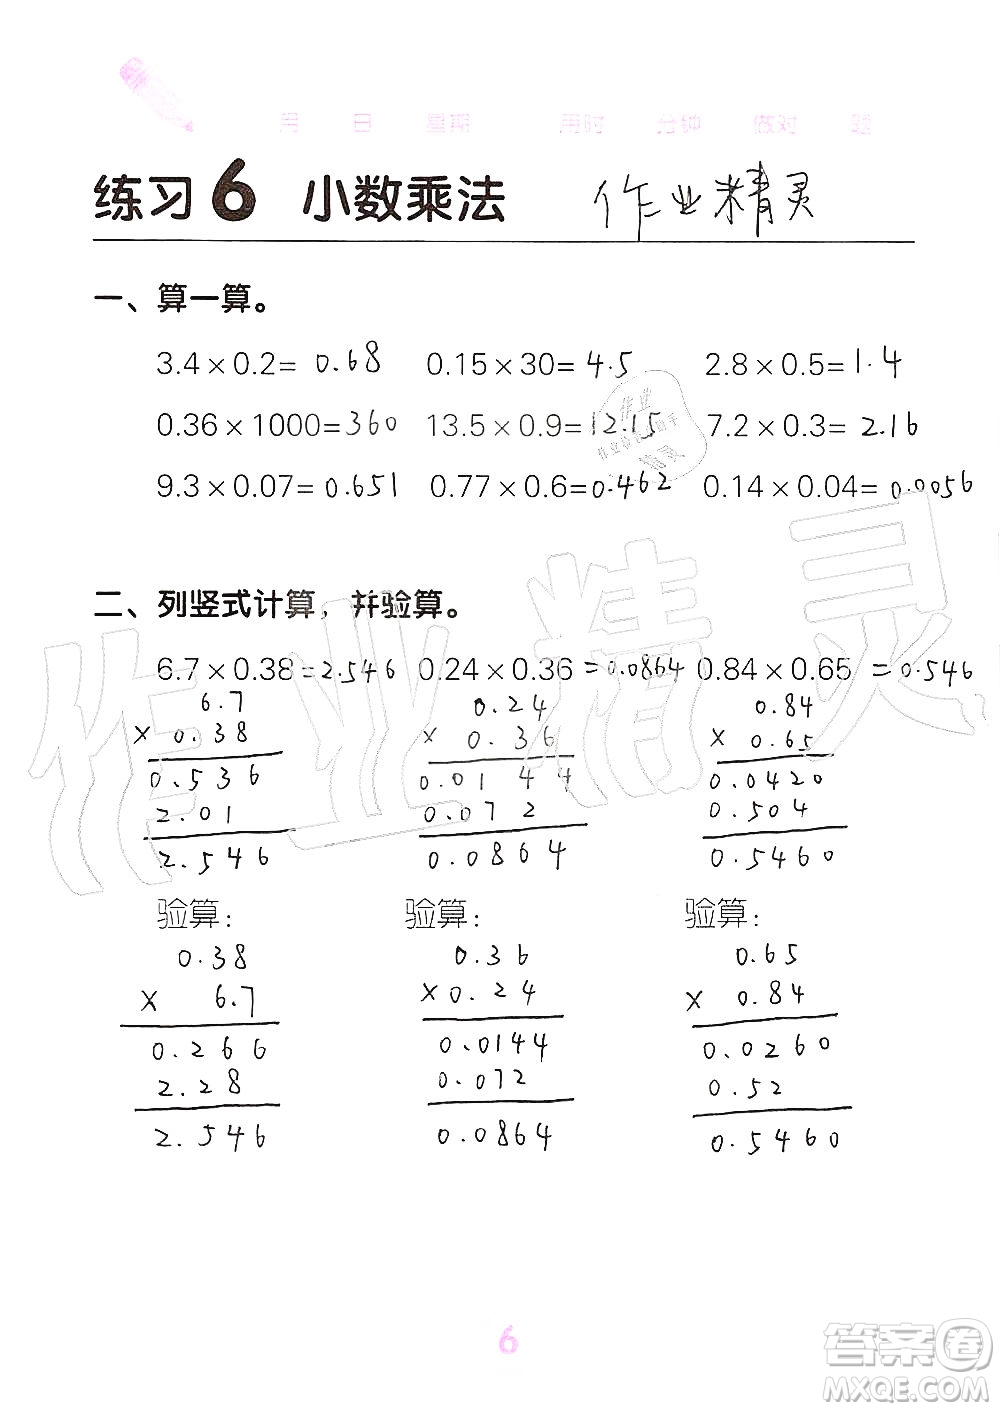 月 日 星期 用时 分钟 做对 题
练习6 小数乘法 作业精灵
一、算一算。
3.4×0.2=0.68 0.15×30=4.5 2.8×0.5=1.4
0.36×1000=360 13.5×0.9=12.15 7.2×0.3=2.16
9.3×0.07=0.651 0.77×0.6=0.462 0.14×0.04=0.0056
二、列竖式计算，并验算。
6.7×0.38=2.546 0.24×0.36=0.0864 0.84×0.65=0.546
6.7 0.24 0.84
×0.38 ×0.36 ×0.65
0.536 0.0144 0.0420
2.01 0.072 0.504
2.546 0.0864 0.5460
验算: 验算: 验算:
0.38 0.36 0.65
×6.7 ×0.24 ×0.84
0.266 0.0144 0.0260
2.28 0.072 0.52
2.546 0.0864 0.5460
6
作业精灵
答案圈
MXQE.COM